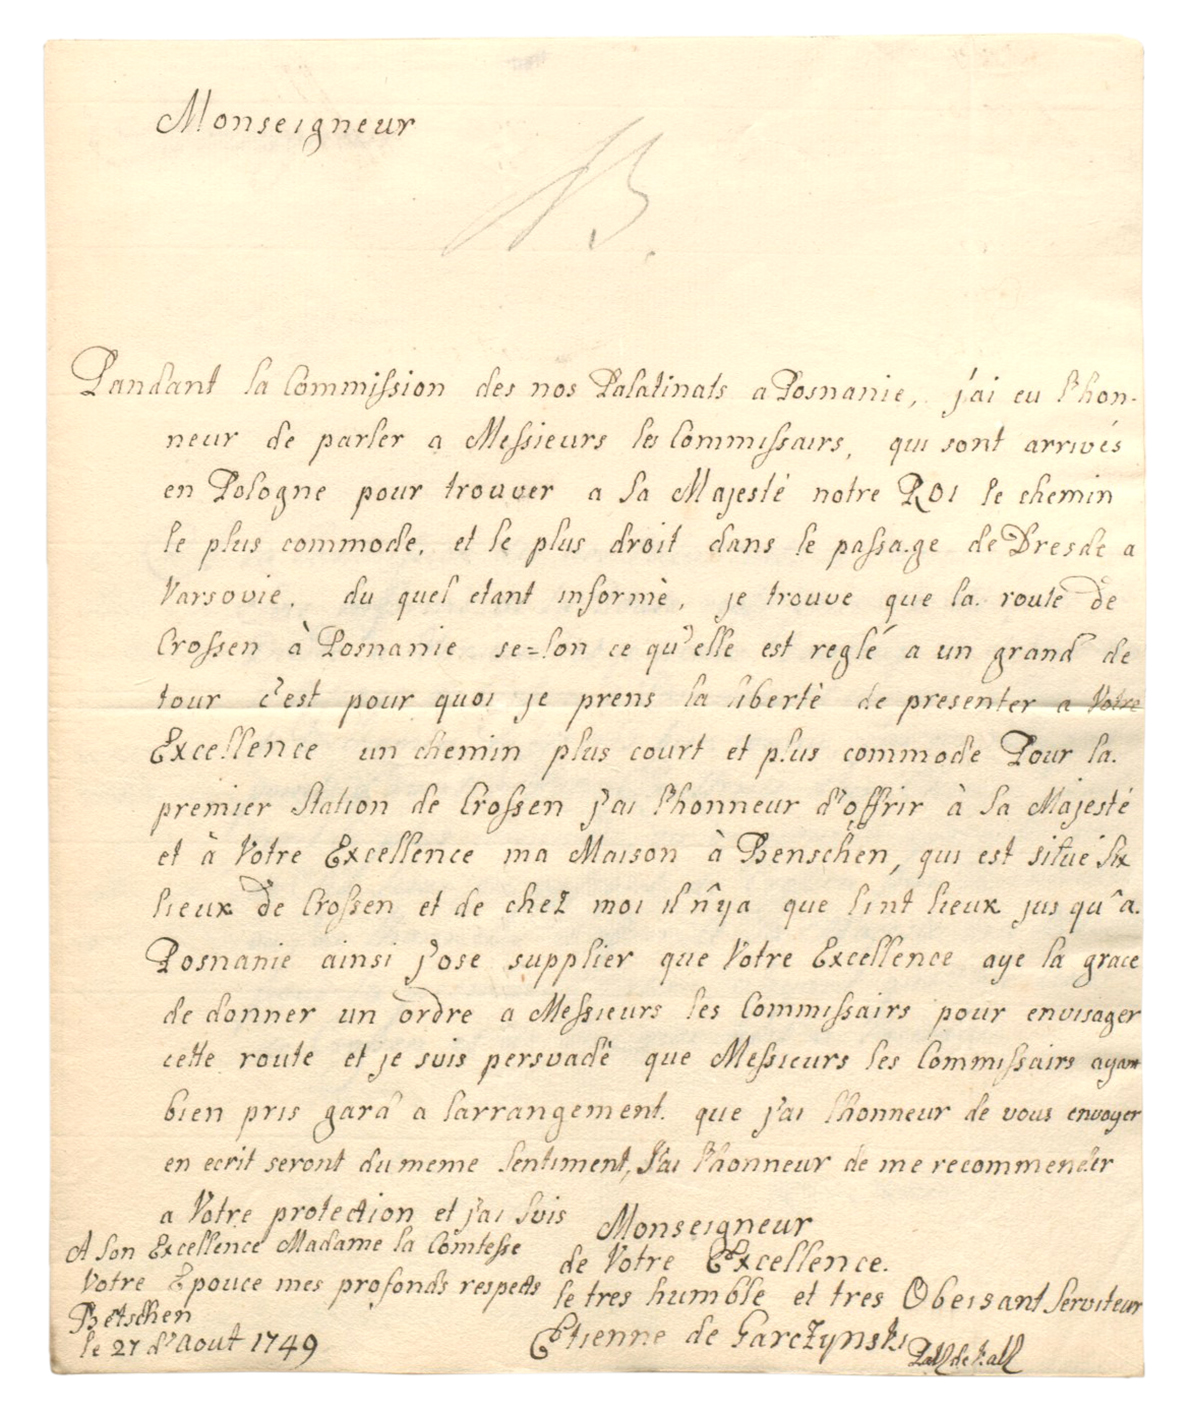 Monseigneur
B.
Pandant la Commission des nos Palatinats a Posnanie, j'ai eu l'hon-
neur de parler a Messieurs les Commissairs, qui sont arrivés
en Pologne pour trouver a sa Majesté notre Roi le chemin
le plus commode, et le plus droit dans le passage de Dresde a
Varsovie, du quel etant informè, je trouve que la route de
Crossen à Posnanie se=lon ce qu'elle est reglé a un grand de
tour c'est pour quoi je prens la libertè de presenter a Votre
Excellence un chemin plus court et plus commode Pour la
premier Station de Crossen j'ai l'honneur d'offrir à sa Majesté
et à Votre Excellence ma Maison à Benschen, qui est situé six
lieux de Crossen et de chez moi il n'ya que sint lieux jus qu'a
Posnanie ainsi j'ose supplier que Votre Excellence aye la grace
de donner un ordre a Messieurs les Commissairs pour envisager
cette route et je suis persvadé que Messieurs les Commissairs ayant
bien pris gard a larrangement. que j'ai l'honneur de vous envoyer
en ecrit seront du meme sentiment, J'ai l'honneur de me recommender
a Votre protection et j'ai suis Monseigneur
de Votre Excellence.
le tres humble et tres Obeisant Serviteur
Etienne de Garczynski
Pall de Kall
A Son Excellence Madame la Comtesse
Votre Epouce mes profonds respects
Betschen
le 27 d'Aout 1749